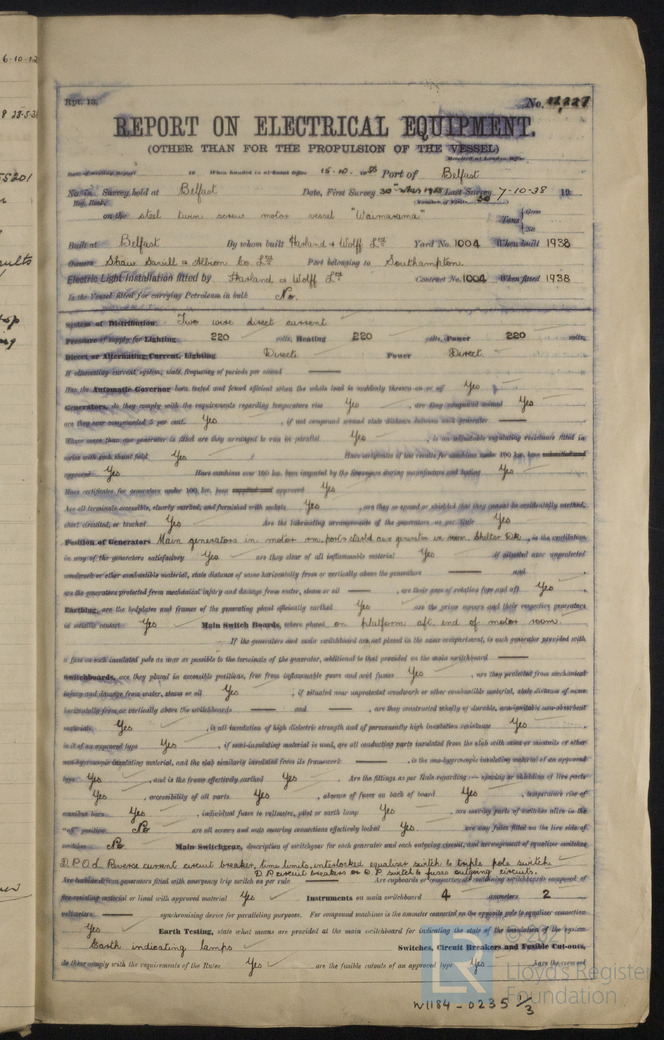 6-10-
28-5-3
5201
sults
Rpt. 13.
No. 12,227
REPORT ON ELECTRICAL EQUIPMENT.
(OTHER THAN FOR THE PROPULSION OF THE VESSEL)
Received at London Office
Date of writing Report 19 When handed in at Local Office 15.10. 1938 Port of Belfast
No. in Survey held at Belfast Date, First Survey 30th Last Survey 7-10-38 19
Reg. Book. Number of Visits 30
on the steel twin screw motor vessel "Waimarama" Tons Gross Net
Built at Belfast By whom built Harland & Wolff Ltd Yard No. 1004 When built 1938
Owners Shaw Savill & Albion Co. Ltd Port belonging to Southampton
Electric Light Installation fitted by Harland & Wolff Ltd Contract No. 1004 When fitted 1938
Is the Vessel fitted for carrying Petroleum in bulk No.
System of Distribution Two wire direct current
Pressure of supply for Lighting 220 volts, Heating 220 volts, Power 220 volts.
Direct or Alternating Current, Lighting Direct Power Direct
If alternating current system, state frequency of periods per second —
Has the Automatic Governor been tested and found efficient when the whole load is suddenly thrown on or off Yes
Generators, do they comply with the requirements regarding temperature rise Yes, are they compound wound Yes
are they over compounded 5 per cent. Yes, if not compound wound state distance between each generator —
Where more than one generator is fitted are they arranged to run in parallel Yes, is an adjustable regulating resistance fitted in
series with each shunt field Yes Have certificates of test results for machines under 100 kw. been submitted and
approved Yes Have machines over 100 kw. been inspected by the Surveyors during manufacture and testing Yes
Have certificates for generators under 100 kw. been supplied and approved Yes
Are all terminals accessible, clearly marked, and furnished with sockets Yes, are they so spaced or shielded that they cannot be accidentally earthed,
short circuited, or touched Yes Are the lubricating arrangements of the generators as per Rule Yes
Position of Generators Main generators in motor rm. port & starbd aux generator in Shelter Dk, is the ventilation
in way of the generators satisfactory Yes are they clear of all inflammable material Yes if situated near unprotected
woodwork or other combustible material, state distance of same horizontally from or vertically above the generators — and —
are the generators protected from mechanical injury and damage from water, steam or oil —, are their axes of rotation fore and aft Yes
Earthing, are the bedplates and frames of the generating plant efficiently earthed Yes are the prime movers and their respective generators
in metallic contact Yes Main Switch Boards, where placed on platform aft end of motor room.
If the generators and main switchboard are not placed in the same compartment, is each generator provided with
a fuse on each insulated pole as near as possible to the terminals of the generator, additional to that provided on the main switchboard —
Switchboards, are they placed in accessible positions, free from inflammable gases and acid fumes Yes, are they protected from mechanical
injury and damage from water, steam or oil Yes, if situated near unprotected woodwork or other combustible material, state distance of same
horizontally from or vertically above the switchboards — and —, are they constructed wholly of durable, non-ignitable non-absorbent
materials Yes, is all insulation of high dielectric strength and of permanently high insulation resistance Yes
is it of an approved type Yes, if semi-insulating material is used, are all conducting parts insulated from the slab with mica or micanite or other
non-hygroscopic insulating material, and the slab similarly insulated from its framework —, is the non-hygroscopic insulating material of an approved
type Yes, and is the frame effectively earthed Yes. Are the fittings as per Rule regarding:— spacing or shielding of live parts
Yes, accessibility of all parts Yes, absence of fuses on back of board Yes, temperature rise of
omnibus bars Yes, individual fuses to voltmeter, pilot or earth lamp Yes, are moving parts of switches alive in the
"off" position No are all screws and nuts securing connections effectively locked Yes. are any fuses fitted on the live side of
switches No Main Switchgear, description of switchgear for each generator and each outgoing circuit, and arrangement of equaliser switches
D.P.O.L. Reverse current circuit breaker, time limits, interlocked equaliser switch & triple pole switch
D.P. circuit breakers or D.P. switch & fuses outgoing circuits.
Are turbine driven generators fitted with emergency trip switch as per rule — Are cupboards or compartments containing switchgear composed of
fire-resisting material or lined with approved material Yes Instruments on main switchboard 4 ammeters 2
voltmeters — synchronising device for paralleling purposes. For compound machines is the ammeter connected on the opposite pole to equaliser connection
Yes Earth Testing, state what means are provided at the main switchboard for indicating the state of the insulation of the system
Earth indicating lamps Switches, Circuit Breakers and Fusible Cut-outs,
do these comply with the requirements of the Rules Yes are the fusible cutouts of an approved type Yes
© 2021
Lloyd's Register
Foundation
W1184-0235 1/3